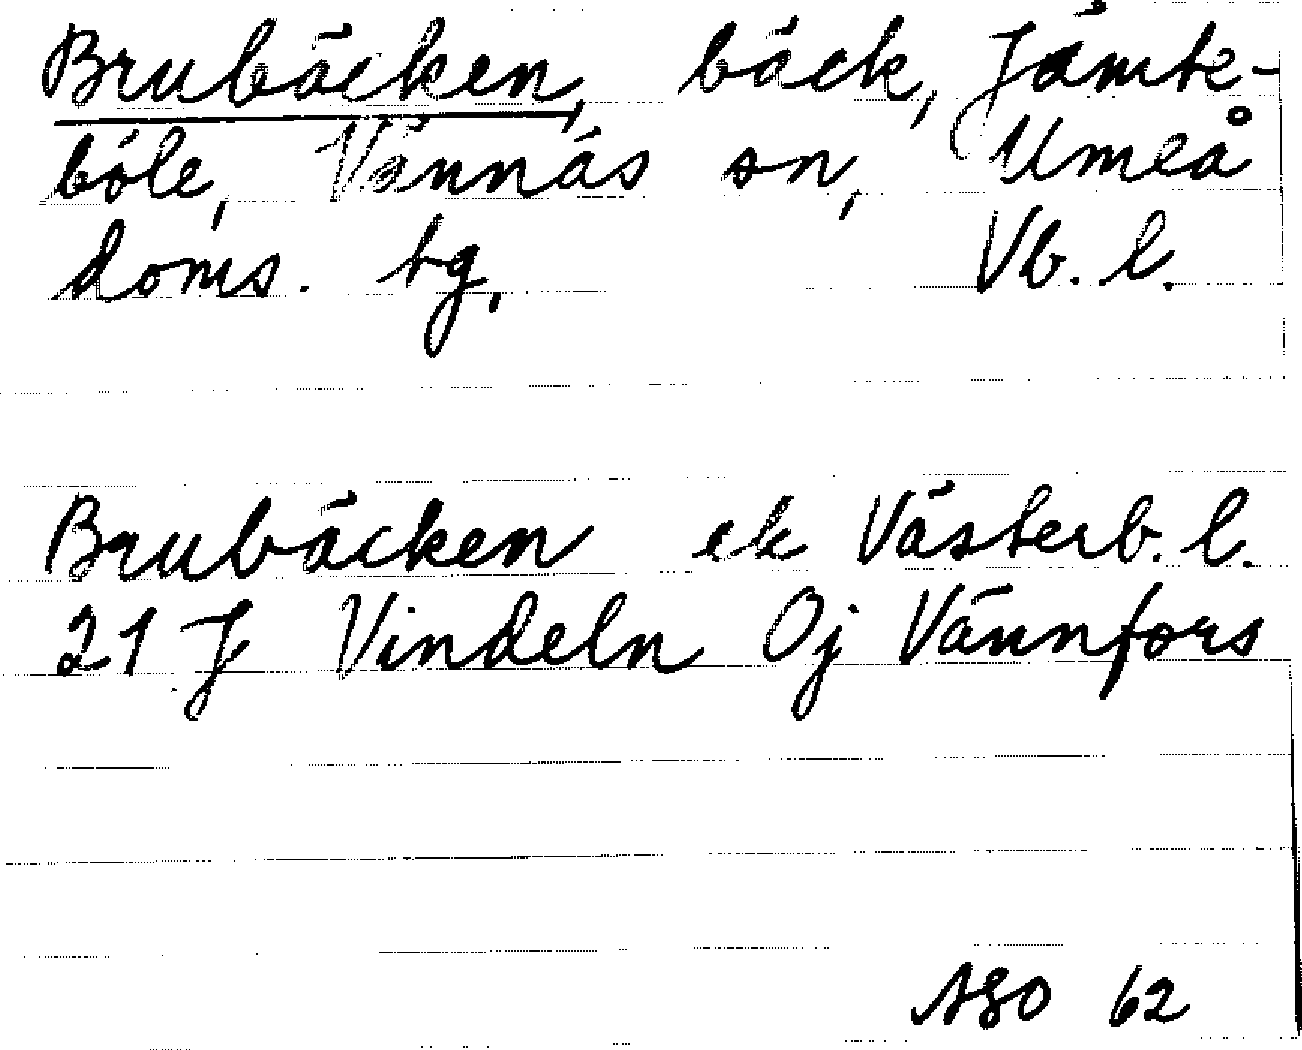 Brubäcken, bäck, Jämte-
böle, Vännäs sn, Umeå
doms. tg, Vb. l.
Brubäcken ek Västerb. l.
21 J Vindeln Oj Vännfors
ASO 62